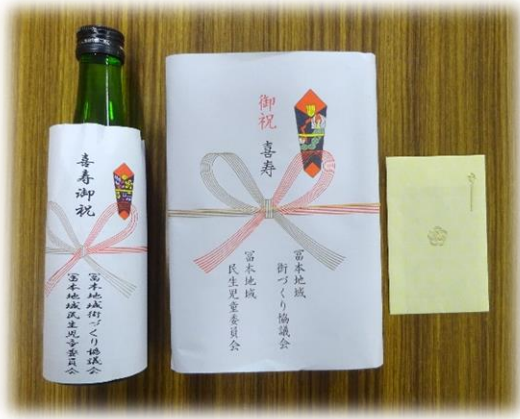 喜寿御祝
冨本地域街づくり協議会
冨本地域民生児童委員会
御祝
喜寿
冨本地域
街づくり協議会
冨本地域
民生児童委員会